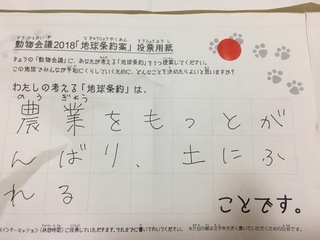 動物会議2018「地球条約案」投票用紙
きょうの「動物会議」に、あなたが考える「地球条約」を1つ提案してください。
この地球でみんなが平和にくらしていくために、どんなことを決めたらよいと思いますか?
わたしの考える「地球条約」は、
のう ぎょう
農業をもっとが
んばり、土にふ
れる
ことです。